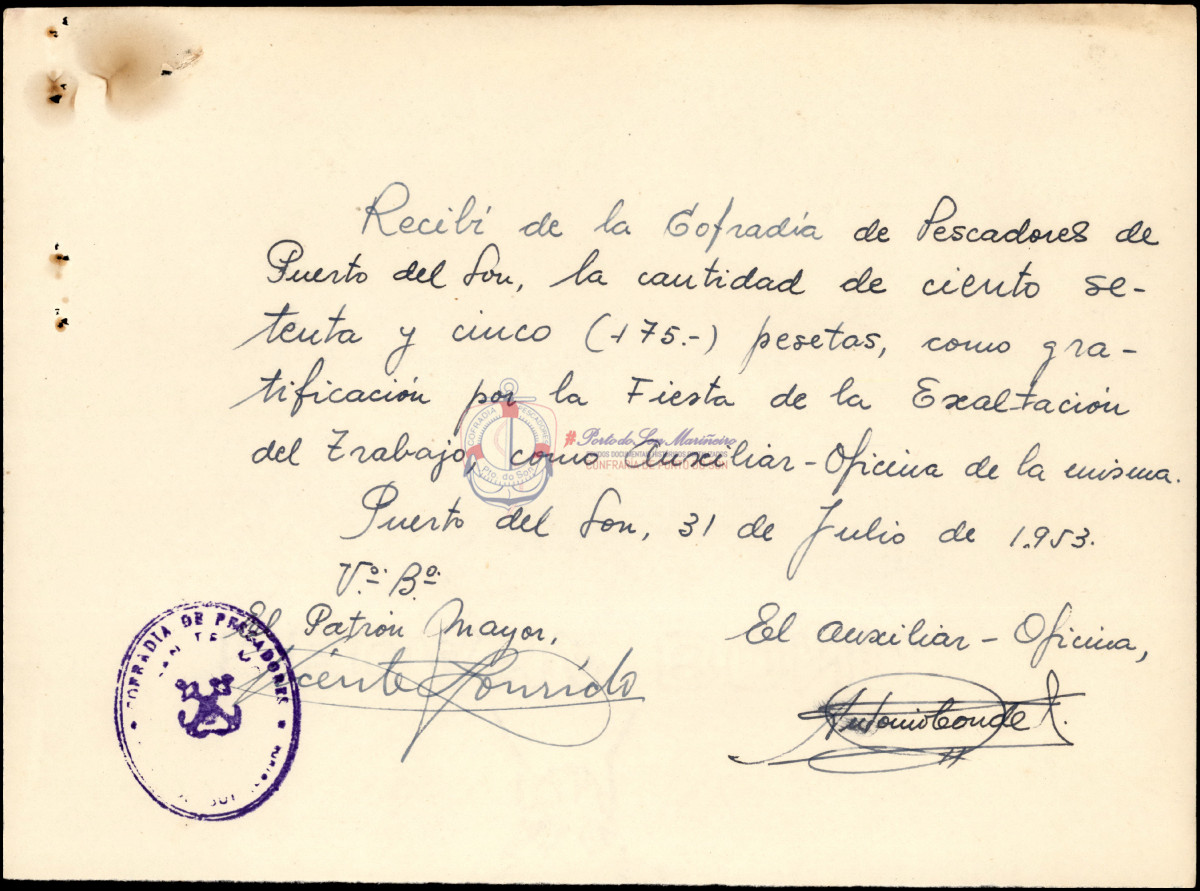 Recibí de la Cofradía de Pescadores de
Puerto del Son, la cantidad de ciento se-
tenta y cinco (175.-) pesetas, como gra-
tificación por la Fiesta de la Exaltación
del Trabajo, como Auxiliar-Oficina de la misma.
Puerto del Son, 31 de Julio de 1.953.
Vº. Bº.
El Patrón Mayor,
El Auxiliar-Oficina,
Vicente
Antonio Conde
COFRADIA DE PESCADORES
COFRADIA PESCADORES
Pto. do Son
#Porto do Son Mariñeiro
CONFRARÍA DE PORTO DO SON